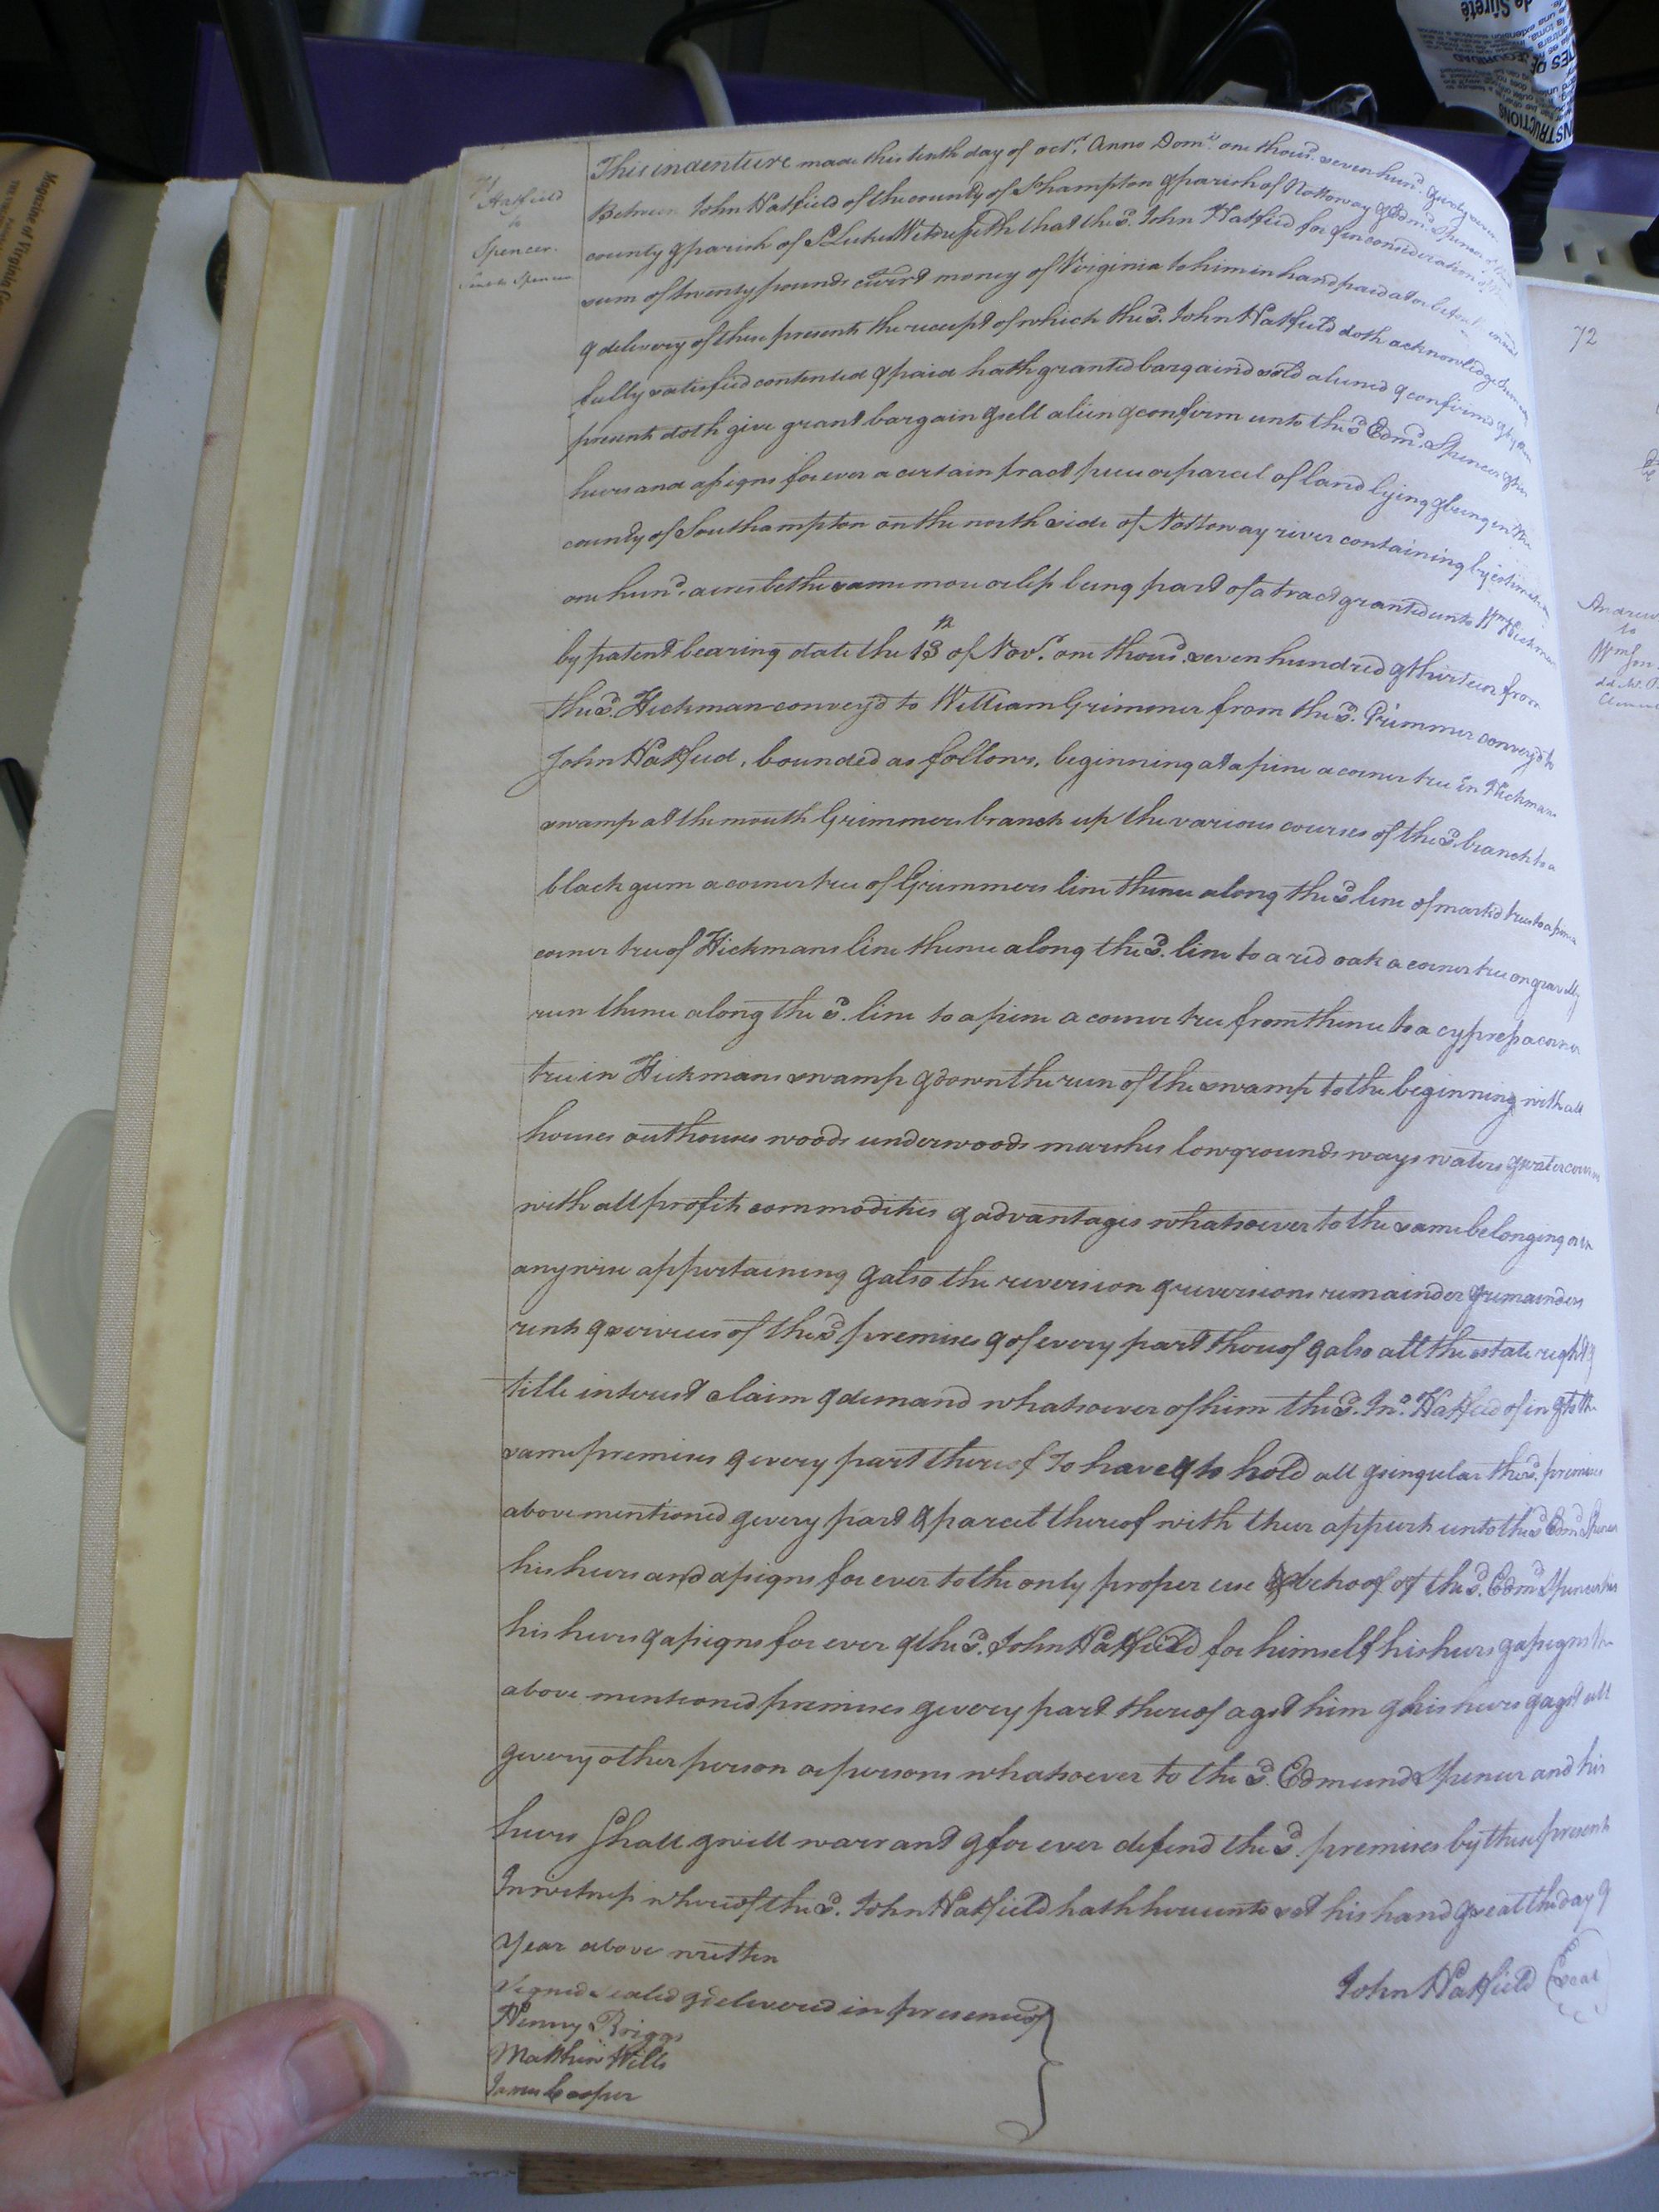 Hatfield
to
Spencer.
This indenture made this tenth day of octr. Anno Domi. one thousd. seven hund. & fifty seven
Between John Hatfield of the county of S'hampton & parish of Nottoway & Edmd. Spencer of
county & parish of St Lukes Witnesseth that the sd. John Hatfield for & in consideration of the
sum of twenty pounds currt money of Virginia to him in hand paid at or before the
& delivery of these presents the receipt of which the sd. John Hatfield doth acknowledge
fully satisfied contented & paid hath granted bargaind sold aliened & confirmd & by these
presents doth give grant bargain & sell alien & confirm unto the sd Edmd. Spencer & his
heirs and assigns for ever a certain tract piece or parcel of land lying & being in the
county of Southampton on the north side of Nottoway river containing by estimation
one hund. acres be the same more or less being part of a tract granted unto Wm Hickman
by patent bearing date the 13 of Novr. one thousd. seven hundred & thirteen from
the sd. Hickman convey'd to William Grimmer from the sd. Grimmer convey'd to
John Hatfied, bounded as follows, beginning at a pine a corner tree in Hickmans
swamp at the mouth Grimmers branch up the various courses of the sd. branch to a
black gum a corner tree of Grimmers line thence along the sd line of markd trees to a pine a
corner tree of Hickmans line thence along the sd. line to a red oak a corner tree on gravelly
run thence along the sd. line to a pine a corner tree from thence to a cypress a corner
tree in Hickmans swamp & down the run of the swamp to the beginning with all
houses outhouses woods underwoods marshes lowgrounds ways waters & watercourses
with all profits commodities & advantages whatsoever to the same belonging or in
anywise appertaining & also the reversion & reversions remainder & remainders
rents & services of the sd premises & of every part thereof & also all the estate right &
title interest claim & demand whatsoever of him the sd. Jno. Hatfield of in & to the
same premises & every part thereof To have & to hold all & singular the sd. premises
above mentioned & every part & parcel thereof with their appurts unto the sd Edmd Spencer
his heirs and assigns for ever to the only proper use & behoof of the sd. Edmd Spencer his
his heirs & assigns for ever & the sd. John Hatfield for himself his heirs & assigns the
above mentioned premises & every part thereof agst him & his heirs & agst all
& every other person or persons whatsoever to the sd. Edmund Spencer and his
heirs shall & will warrant & for ever defend the sd. premises by these presents
In witness whereof the sd. John Hatfield hath hereunto set his hand & seal the day &
Year above written
John Hatfield (Seal)
Signed sealed & delivered in presence of
Henry Briggs
Matthew Wills
James Cooper
72
Andrew
to
Magazine of Virginia
de Sûreté